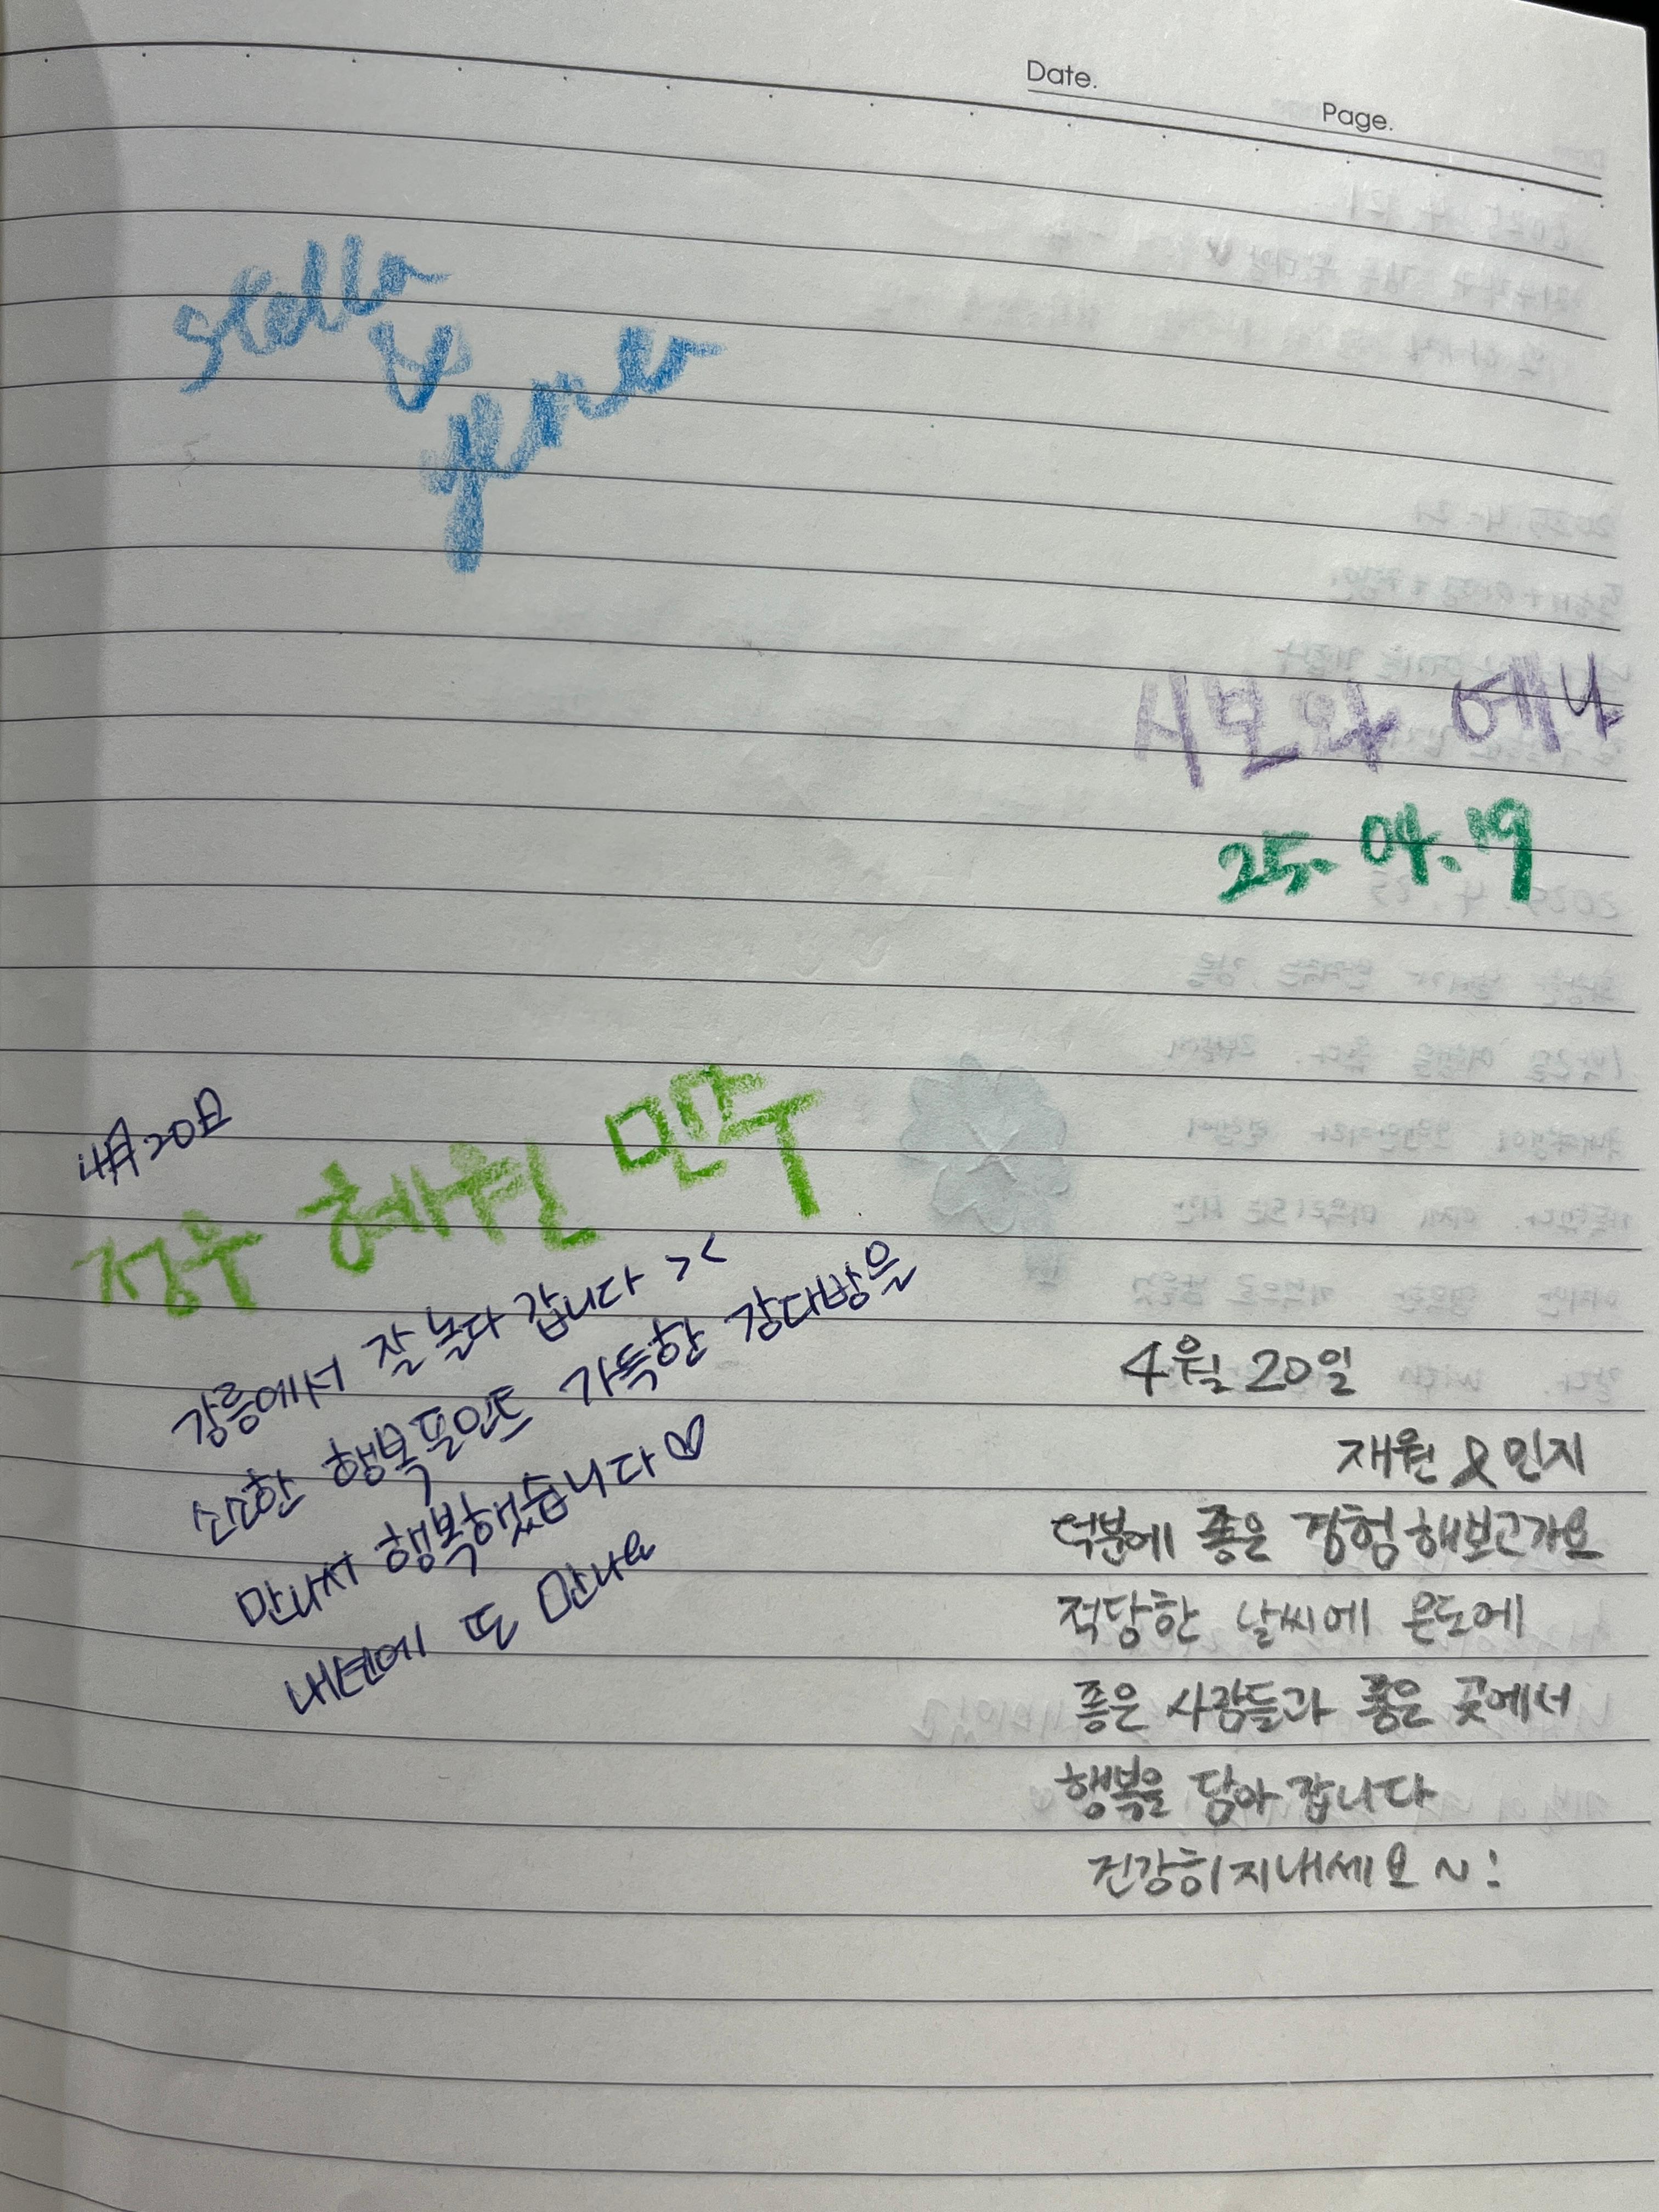 Date.
Page.
stella
&
시보와 에나
25. 04. 19
4月20日
정우 혜원 민수
강릉에서 잘 놀다 갑니다 > <
소소한 행복포인트 가득한 강다방을
만나서 행복했습니다♡
내년에 또 만나요
4월 20일
재원 & 민지
덕분에 좋은 경험 해보고가요
적당한 날씨에 온도에
좋은 사람들과 좋은 곳에서
행복을 담아 갑니다
건강히지내세요 ~!